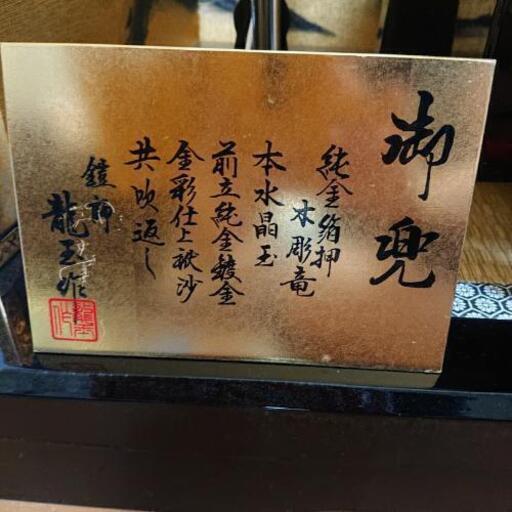 御兜
純金箔押
木彫竜
本水晶玉
前立純金鍍金
金彩仕上祇沙
共吹返し
鎧師
龍玉作